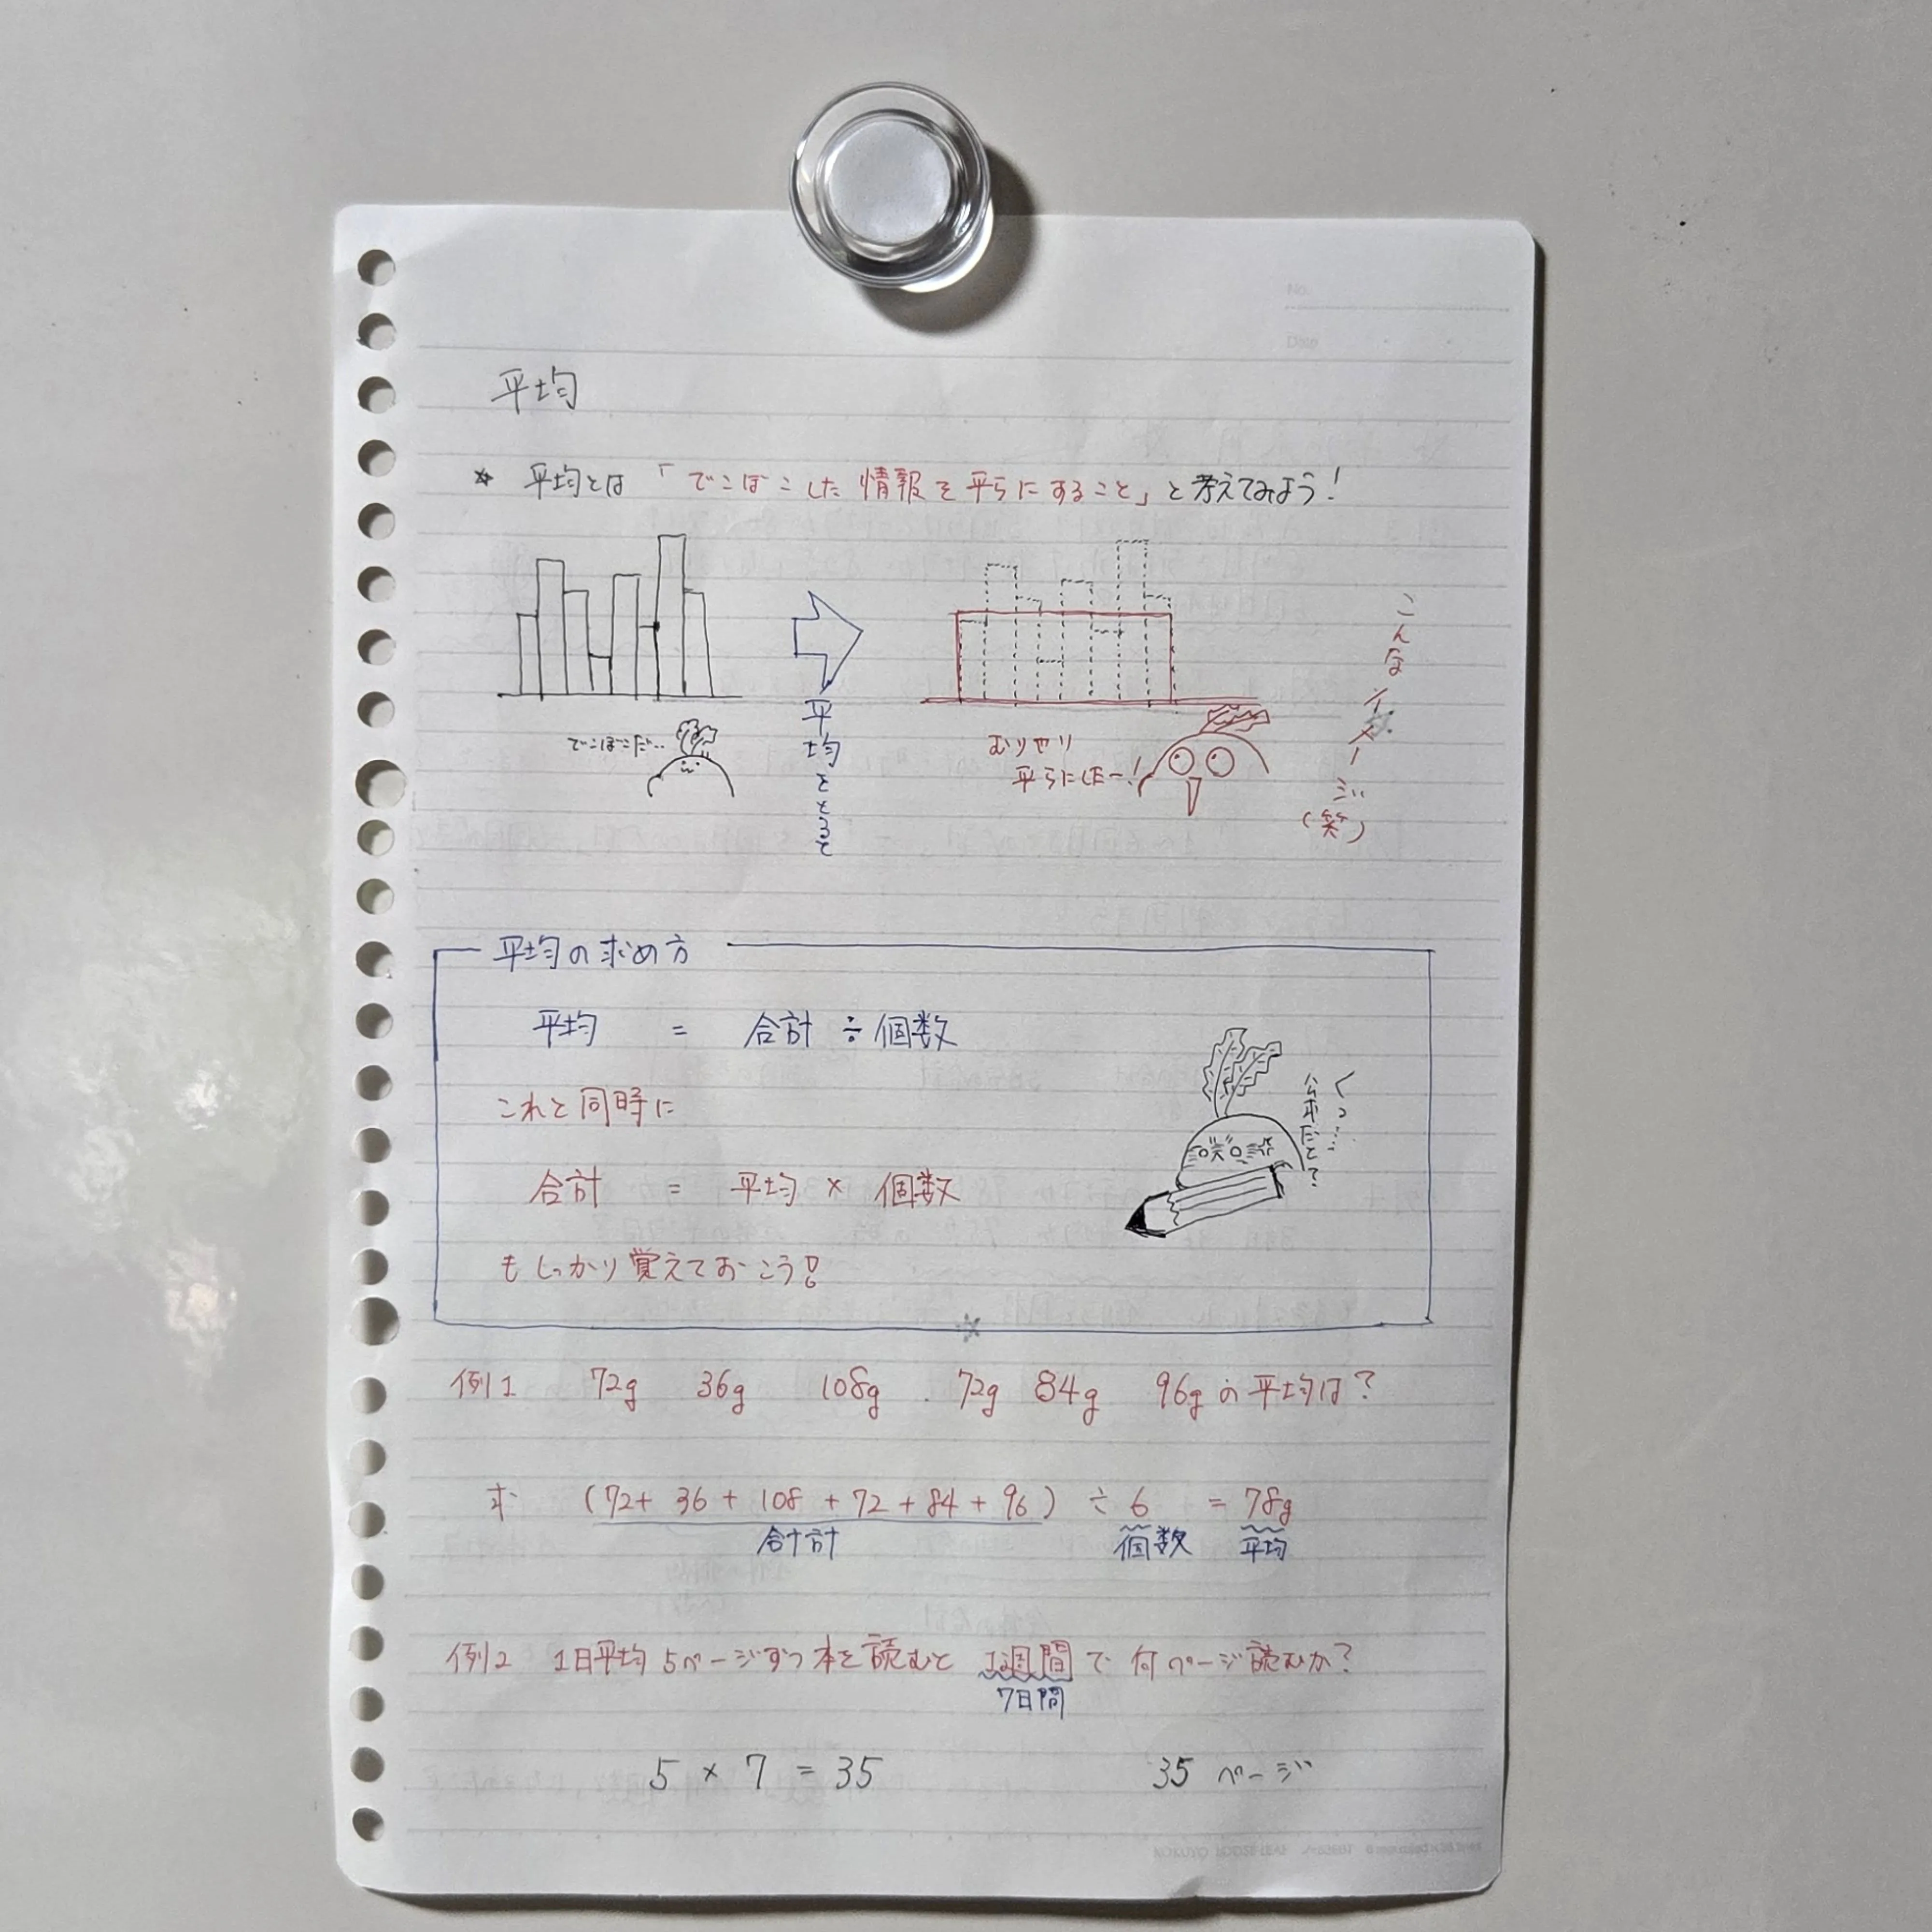 No.
Date
平均
☆ 平均とは「でこぼこした情報を平らにすること」と考えてみよう!
でこぼこだ…
平均をとると
むりやり
平らにしたー!
こんなイメージ
(笑)
平均の求め方
平均 = 合計 ÷ 個数
これと同時に
合計 = 平均 × 個数
もしっかり覚えておこう!
くっ……
公式だと?
例1 72g 36g 108g 72g 84g 96gの平均は?
式 (72+ 36 + 108 + 72 + 84 + 96) ÷ 6 = 78g
合計 個数 平均
例2 1日平均5ページずつ本を読むと1週間で何ページ読むか?
7日間
5 × 7 = 35 35 ページ